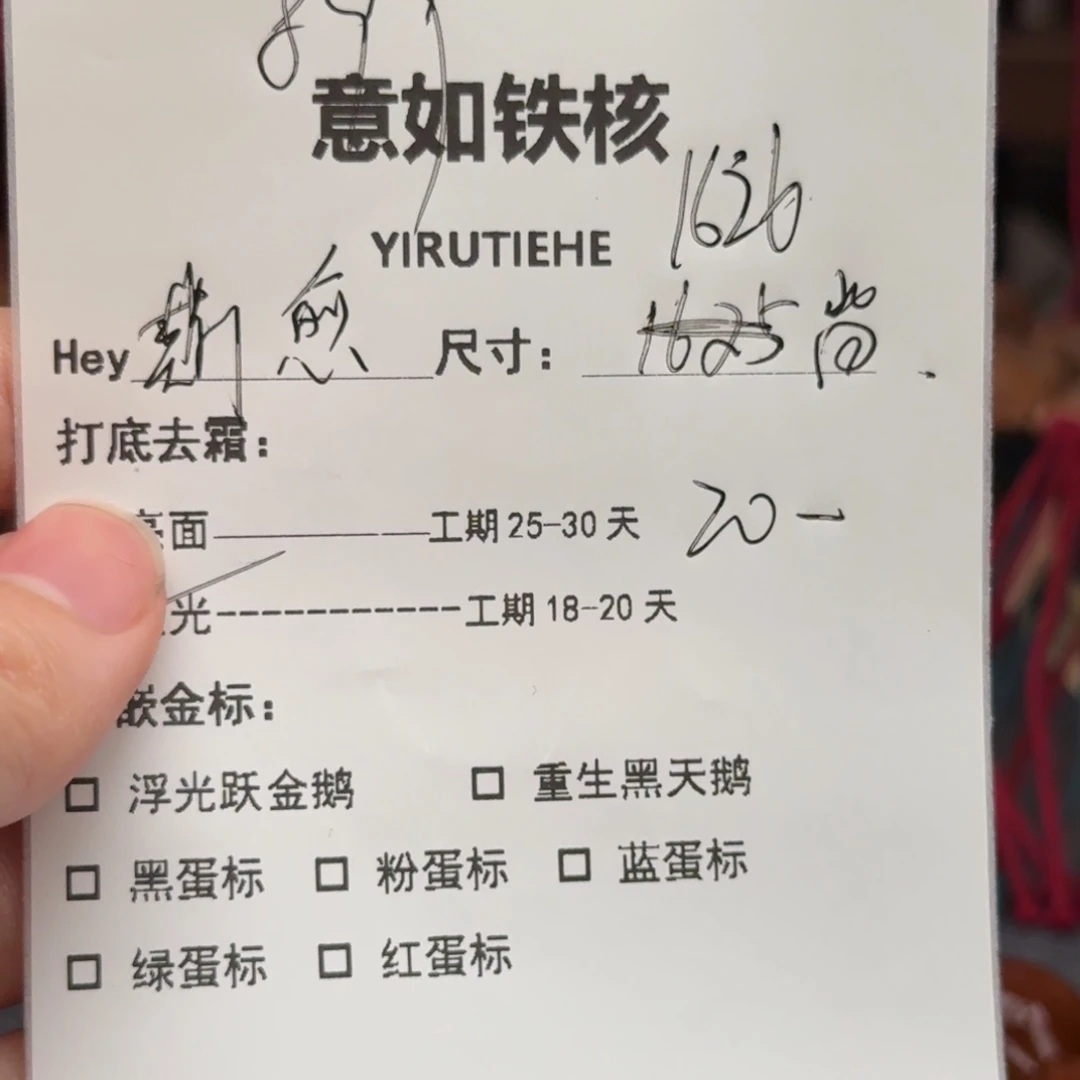 意如铁核
1626
YIRUTIEHE
Hey 煎 尺寸: 1625 尚
打底去霜:
亮面 工期 25-30 天 20-
光-----------工期 18-20 天
嵌金标:
□ 浮光跃金鹅 □ 重生黑天鹅
□ 黑蛋标 □ 粉蛋标 □ 蓝蛋标
□ 绿蛋标 □ 红蛋标